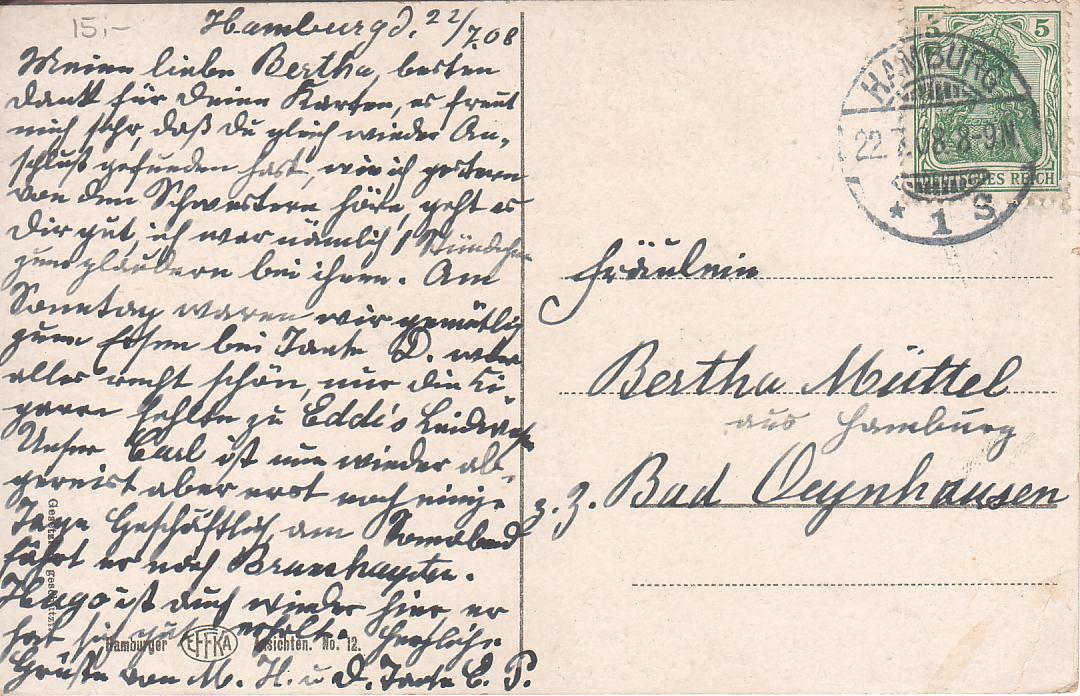 15,-
Hamburg d. 22/7.08
Meine liebe Bertha, besten
Dank für Deine Karten, es freut
mich sehr, daß Du gleich wieder An-
schluß gefunden hast, wie ich gestern
von den Schwestern hörte, geht es
Dir gut, ich war nämlich 1 Stündchen
zum plaudern bei ihnen. Am
Sonntag waren wir gemütlich
zum Essen bei Tante D. war
alles recht schön, nur die Ci-
garren fehlten zu Eddi's Leidwesen
Unser Carl ist nun wieder ab-
gereist aber erst noch einige
Tage Geschäftlich, am Sonnabend
fährt er nach
Hugo ist auch wieder hier er
hat sich gut erholt. Herzliche
Grüße von M. H. u D. Tante E. P.
Gesetzl. geschützt.
Hamburger EFFKA Ansichten. No. 12.
5 5
DEUTSCHES REICH
HAMBURG
22.7.08.8-9N.
* 1 S.
Fräulein
Bertha Müttel
aus Hamburg
z. Z. Bad Oeynhausen